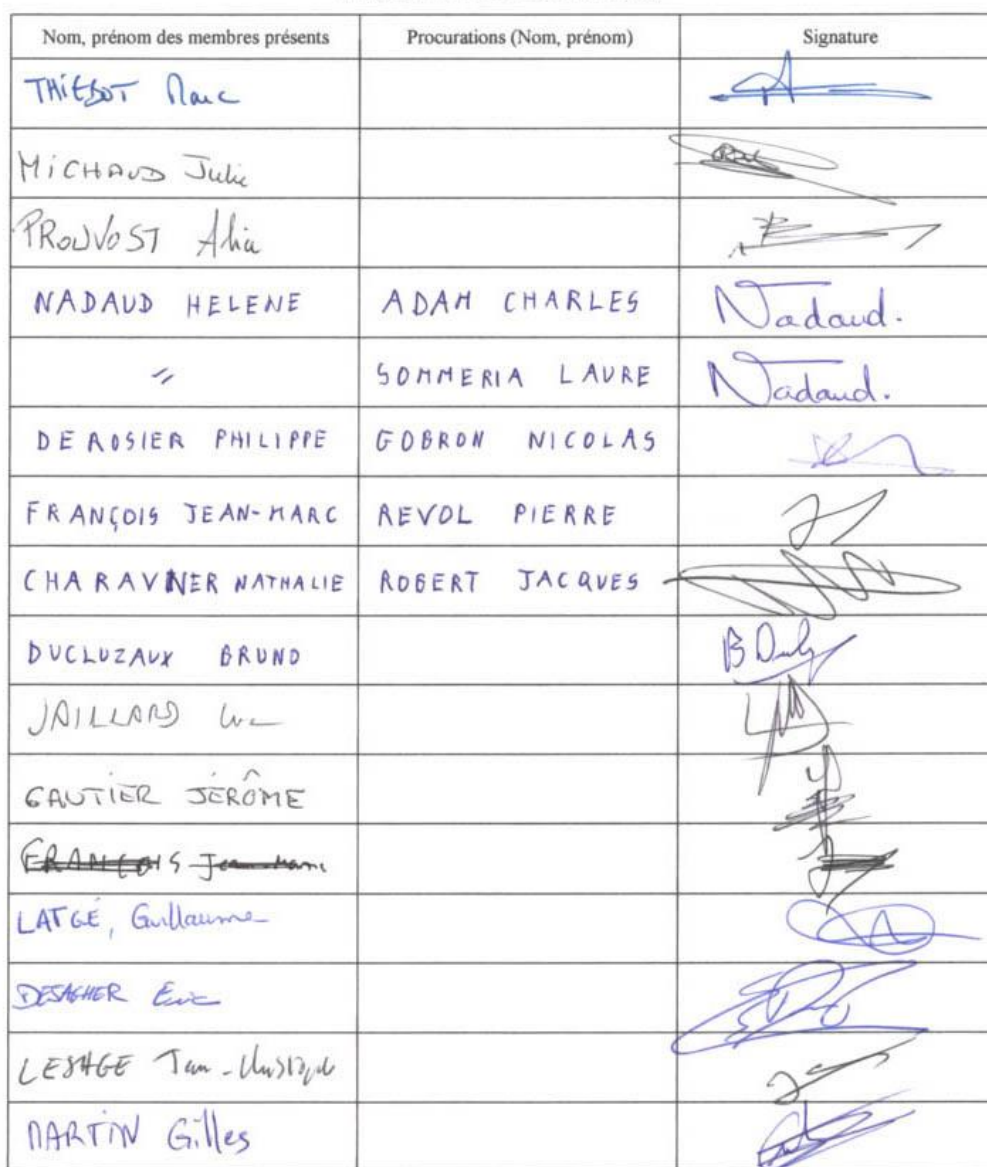 Nom, prénom des membres présents Procurations (Nom, prénom) Signature
THIEBOT Marc
MICHAUD Julie
PROUVOST Alice
NADAUD HELENE ADAM CHARLES Nadaud.
〃 SOMMERIA LAURE Nadaud.
DEROSIER PHILIPPE GOBRON NICOLAS
FRANÇOIS JEAN-MARC REVOL PIERRE
CHARAVNER NATHALIE ROBERT JACQUES
DUCLUZAUX BRUNO
JAILLARD Luc
GAUTIER JÉRÔME
FRANÇOIS Jean-Marc
LATGÉ, Guillaume
DESAGHER Eric
LESAGE Jean-Christophe
MARTIN Gilles